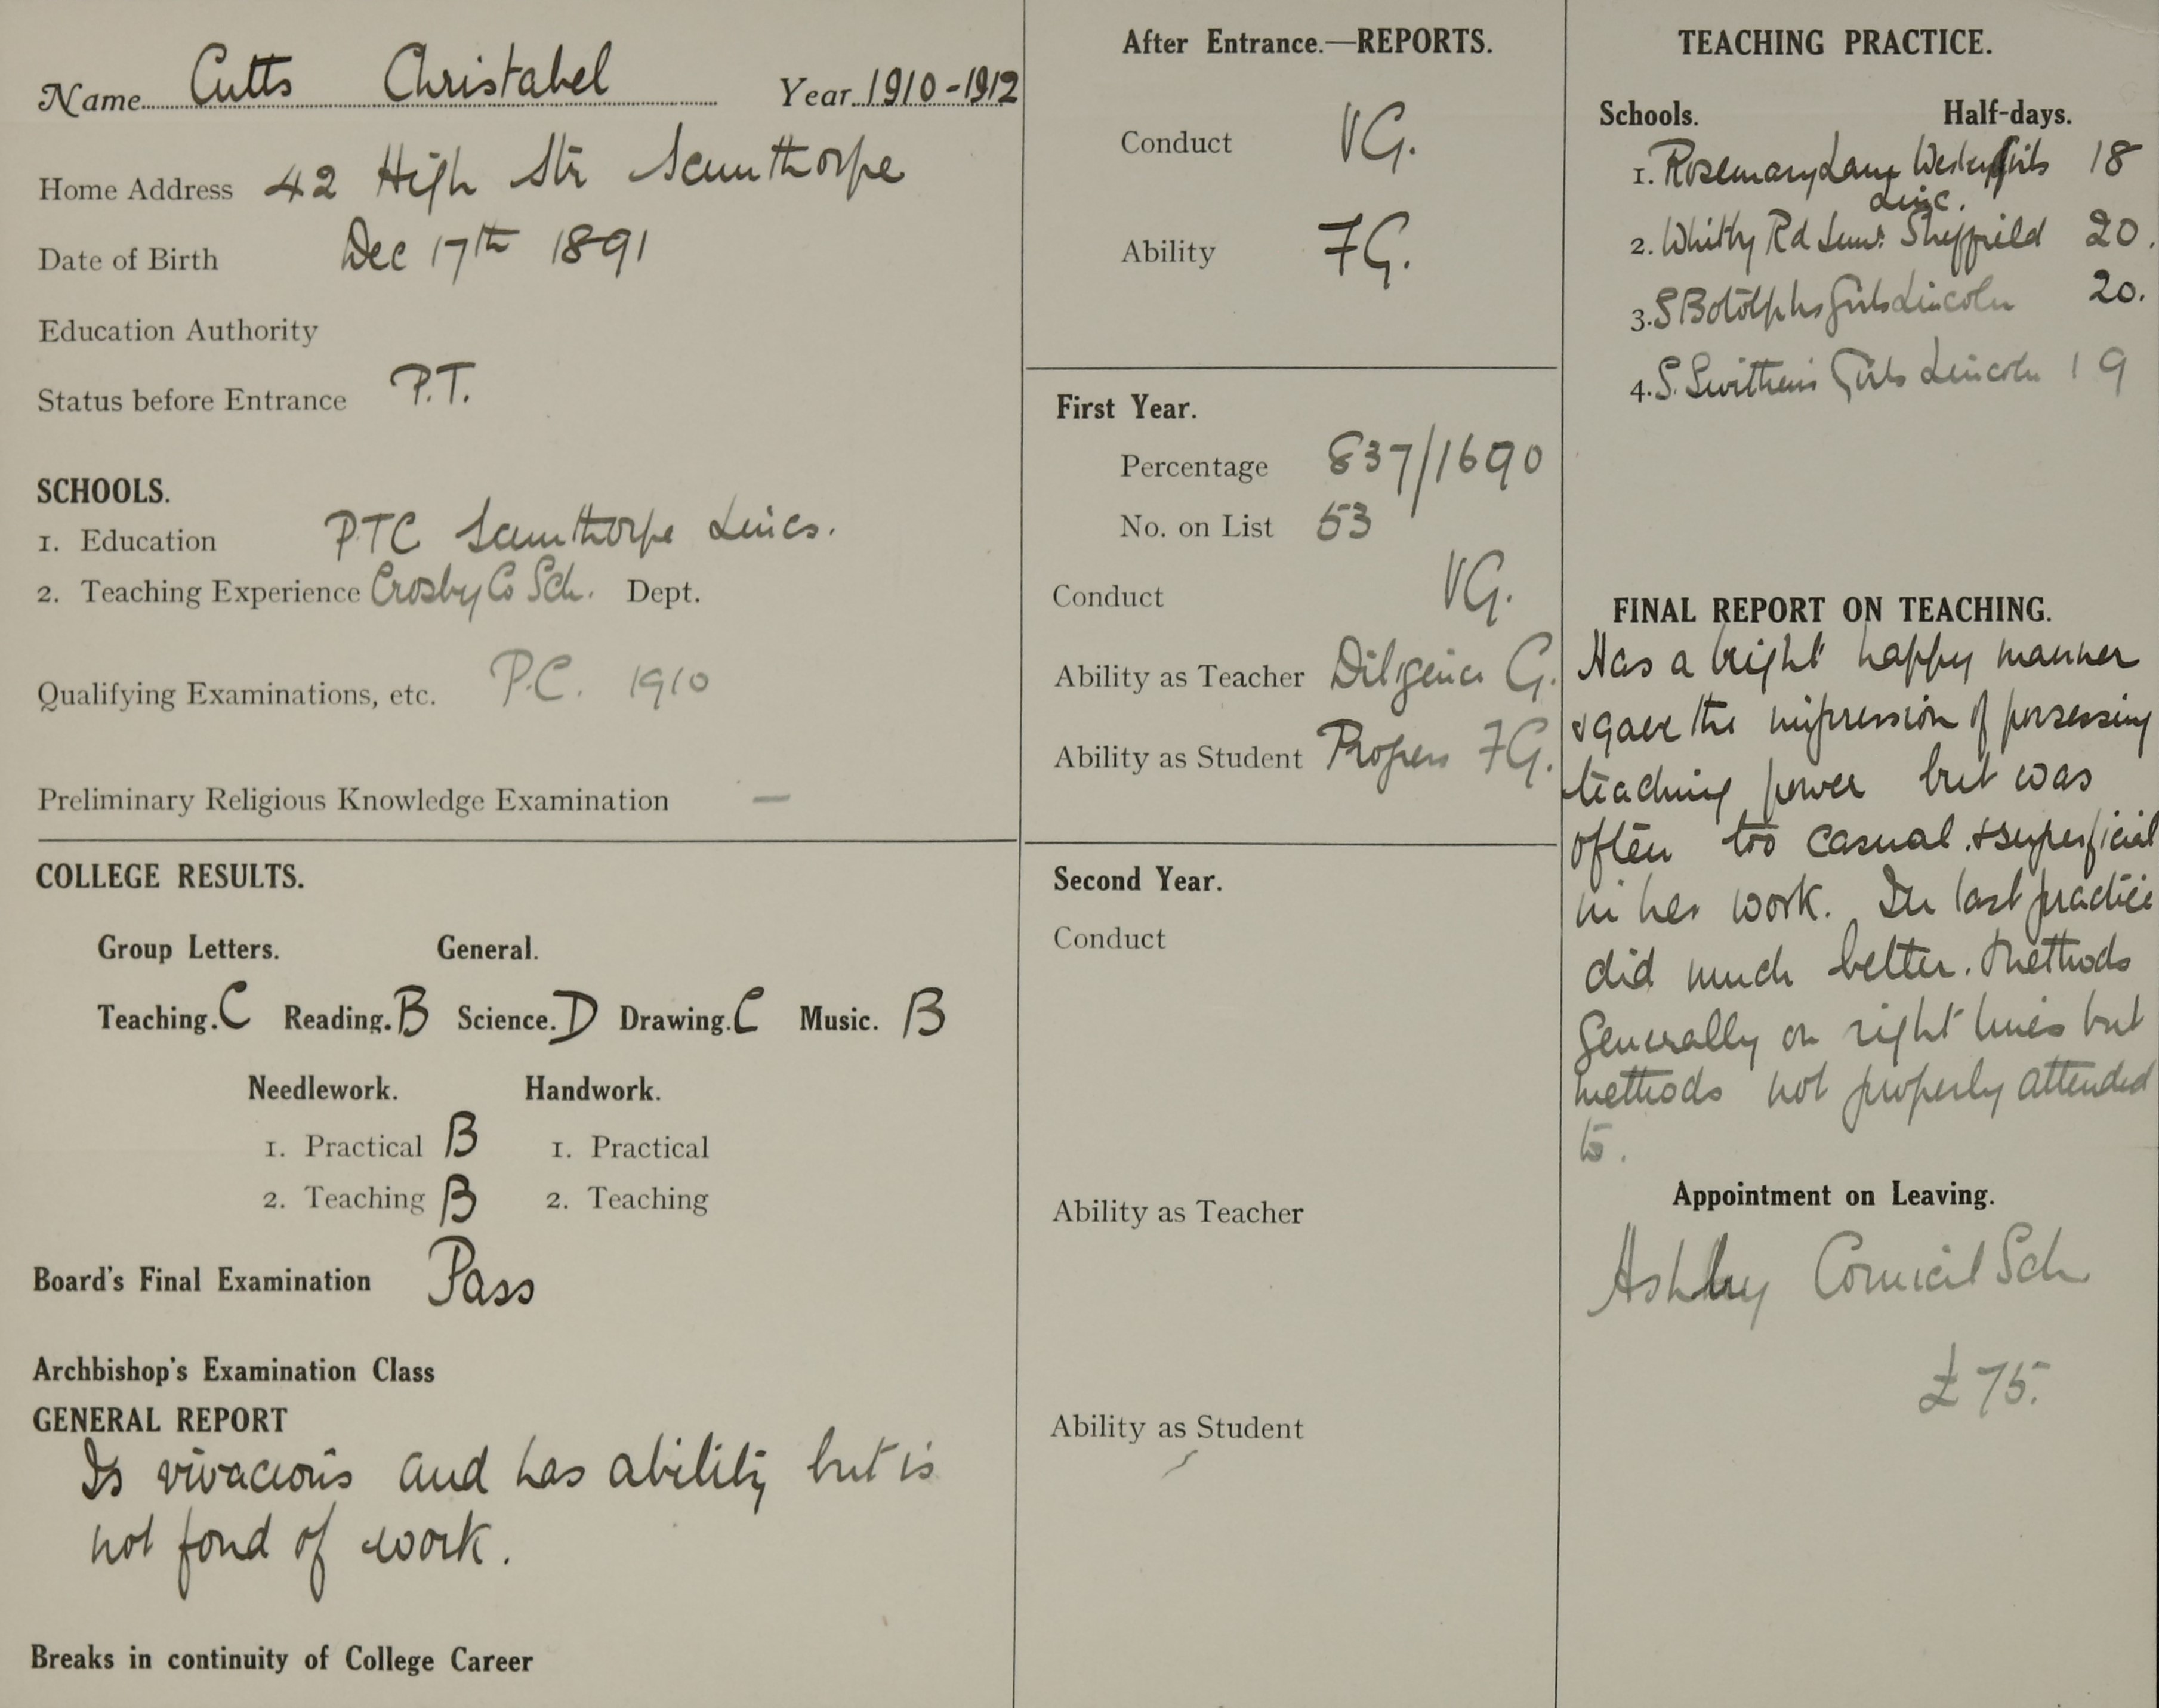 Name Cutts Christabel Year 1910-1912
Home Address 42 High Str Scunthorpe
Date of Birth Dec 17th 1891
Education Authority
Status before Entrance P.T.
SCHOOLS.
1. Education PTC Scunthorpe Lincs.
2. Teaching Experience Crosby Co Sch. Dept.
Qualifying Examinations, etc. P.C. 1910
Preliminary Religious Knowledge Examination —
COLLEGE RESULTS.
Group Letters. General.
Teaching. C Reading. B Science. D Drawing. C Music. B
Needlework. Handwork.
1. Practical B 1. Practical
2. Teaching B 2. Teaching
Board's Final Examination Pass
Archbishop's Examination Class
GENERAL REPORT
Is vivacious and has ability but is
not fond of work.
Breaks in continuity of College Career
After Entrance.—REPORTS.
Conduct VG.
Ability FG.
First Year.
Percentage 837/1690
No. on List 53
Conduct VG.
Ability as Teacher Diligence G.
Ability as Student Progress FG.
Second Year.
Conduct
Ability as Teacher
Ability as Student
TEACHING PRACTICE.
Schools. Half-days.
1. Rosemary Lane Girls 18
Linc.
2. Whitby Rd Sheffield 20.
3. S Botolphs Girls Lincoln 20.
4. S. Swithens Girls Lincoln 19
FINAL REPORT ON TEACHING.
Has a bright happy manner
& gave the impression of possessing
teaching power but was
often too casual & superficial
in her work. In last practice
did much better. Methods
Generally on right lines but
methods not properly attended
to.
Appointment on Leaving.
Ashby Council Sch
£75.